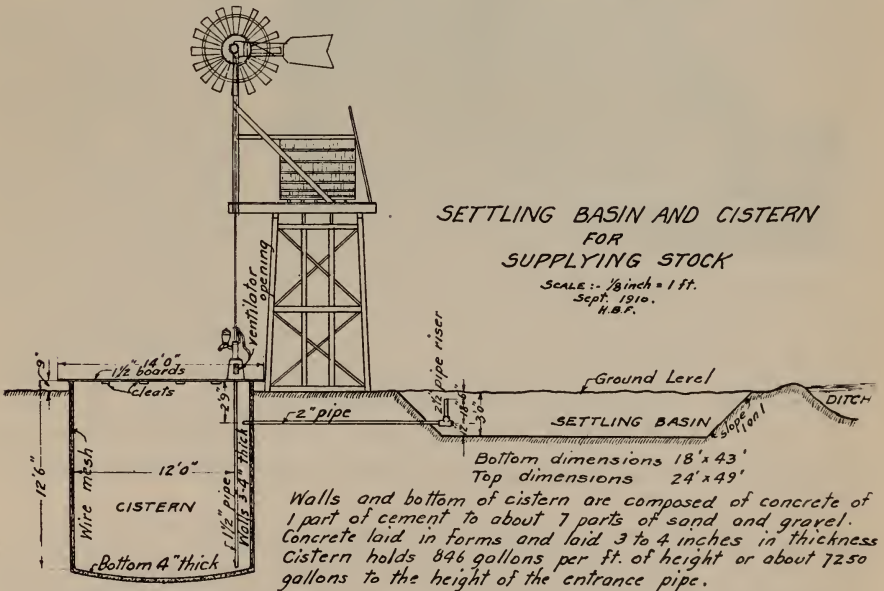 SETTLING BASIN AND CISTERN
FOR
SUPPLYING STOCK
SCALE :- 1/8 inch = 1 ft.
Sept. 1910.
H.B.F.
ventilator
opening
9"
14'0"
1½" boards
cleats
2'9"
2" pipe
2½" pipe riser
Ground Level
DITCH
SETTLING BASIN
Slope
1 on 1
3'0"
12'6"
Wire mesh
12'0"
CISTERN
1½" pipe
Walls 3-4" thick
Bottom 4" thick
Bottom dimensions 18' x 43'
Top dimensions 24' x 49'
Walls and bottom of cistern are composed of concrete of
1 part of cement to about 7 parts of sand and gravel.
Concrete laid in forms and laid 3 to 4 inches in thickness
Cistern holds 846 gallons per ft. of height or about 7250
gallons to the height of the entrance pipe.